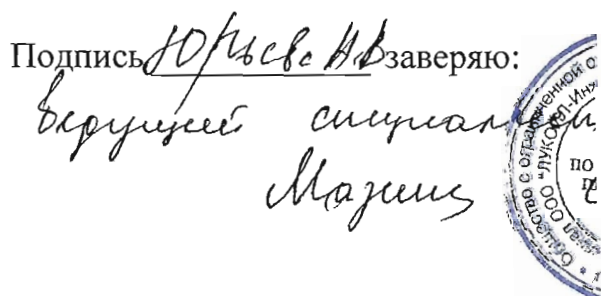 Подпись Юрьева А В заверяю:
Ведущий специалист
Мазин
Общество с ограниченной о
ал ООО "ЛУКОЙЛ-Ин
по